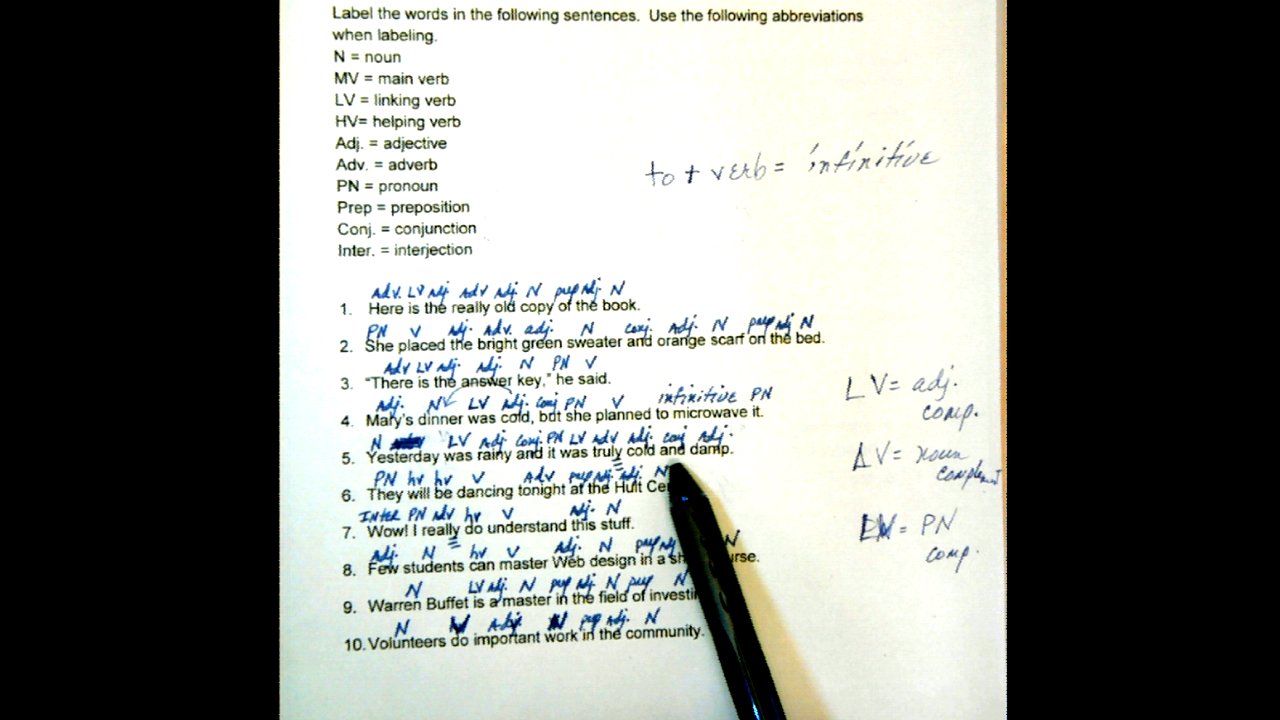 Label the words in the following sentences. Use the following abbreviations
when labeling.
N = noun
MV = main verb
LV = linking verb
HV= helping verb
Adj. = adjective
Adv. = adverb
PN = pronoun
Prep = preposition
Conj. = conjunction
Inter. = interjection
to + verb = infinitive
Adv. LV Adj. Adv Adj. N prep Adj. N
1. Here is the really old copy of the book.
PN V Adj. Adv. adj. N conj. Adj. N prep Adj N
2. She placed the bright green sweater and orange scarf on the bed.
Adv LV Adj. Adj. N PN V
3. "There is the answer key," he said.
Adj. N LV Adj. Conj PN V infinitive PN
4. Mary's dinner was cold, but she planned to microwave it.
N LV Adj Conj. PN LV Adv Adj. conj Adj.
5. Yesterday was rainy and it was truly cold and damp.
PN hv hv V Adv prep Adj. Adj. N
6. They will be dancing tonight at the Hult
Inter PN Adv hv V Adj. N
7. Wow! I really do understand this stuff.
Adj. N hv V Adj. N prep N
8. Few students can master Web design in a
N LV Adj. N prep Adj N prep N
9. Warren Buffet is a master in the field of
N Adj N prep Adj. N
10. Volunteers do important work in the community.
LV = adj.
comp.
LV = noun
complement
= PN
comp.